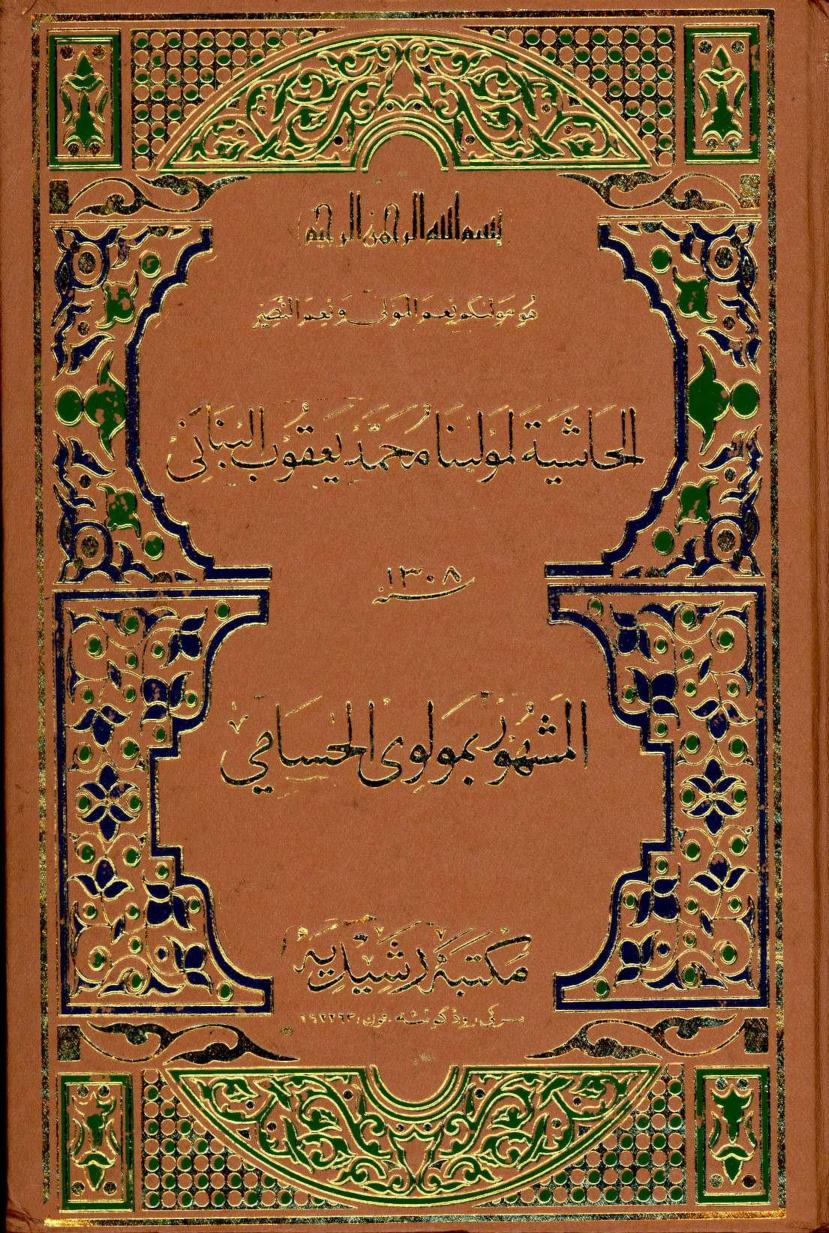 بسم الله الرحمن الرحيم
هو مولىكم نعم المولى و نعم النصير
الحاشية لمولينا محمد يعقوب البنانى
سنه ١٣٠٨
المشهور بمولوى الحسامي
مكتبة رشيديه
سركى رود كوئٹه فون: ٦٦٢٢٦٣